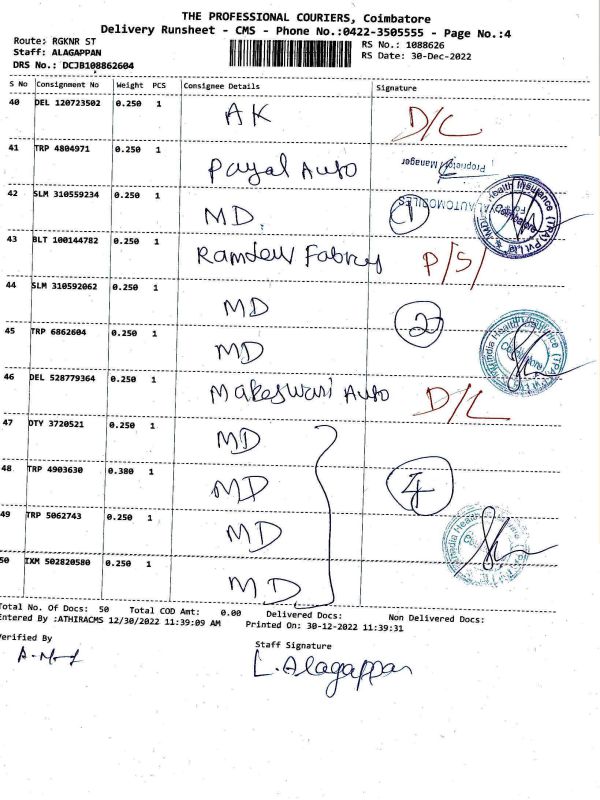 THE PROFESSIONAL COURIERS, Coimbatore
Delivery Runsheet - CMS - Phone No.:0422-3505555 - Page No.:4
Route: RGKNR ST
RS No.: 1088626
Staff: ALAGAPPAN
RS Date: 30-Dec-2022
DRS No.: DCJB108862604
S No Consignment No Weight PCS Consignee Details Signature
40 DEL 120723502 0.250 1 AK D/L
41 TRP 4804971 0.250 1 Payal Auto
Proprietor Manager
42 SLM 310559234 0.250 1 MD 1
AUTOMOBILES
Health Insurance (TPA) Pvt Ltd
Coimbatore
43 BLT 100144782 0.250 1 Ramdev Fabrics P/S
44 SLM 310592062 0.250 1 MD 2
45 TRP 6862604 0.250 1 MD
MDIndia Health Insurance (TPA)
Coimbatore
46 DEL 528779364 0.250 1 Makeswari Auto D/L
47 DTY 3720521 0.250 1 MD
48 TRP 4903630 0.380 1 MD 4
49 TRP 5062743 0.250 1 MD
50 IXM 502820580 0.250 1 MD
Total No. Of Docs: 50 Total COD Amt: 0.00 Delivered Docs: Non Delivered Docs:
Entered By :ATHIRACMS 12/30/2022 11:39:09 AM Printed On: 30-12-2022 11:39:31
Verified By Staff Signature
L. Alagappan